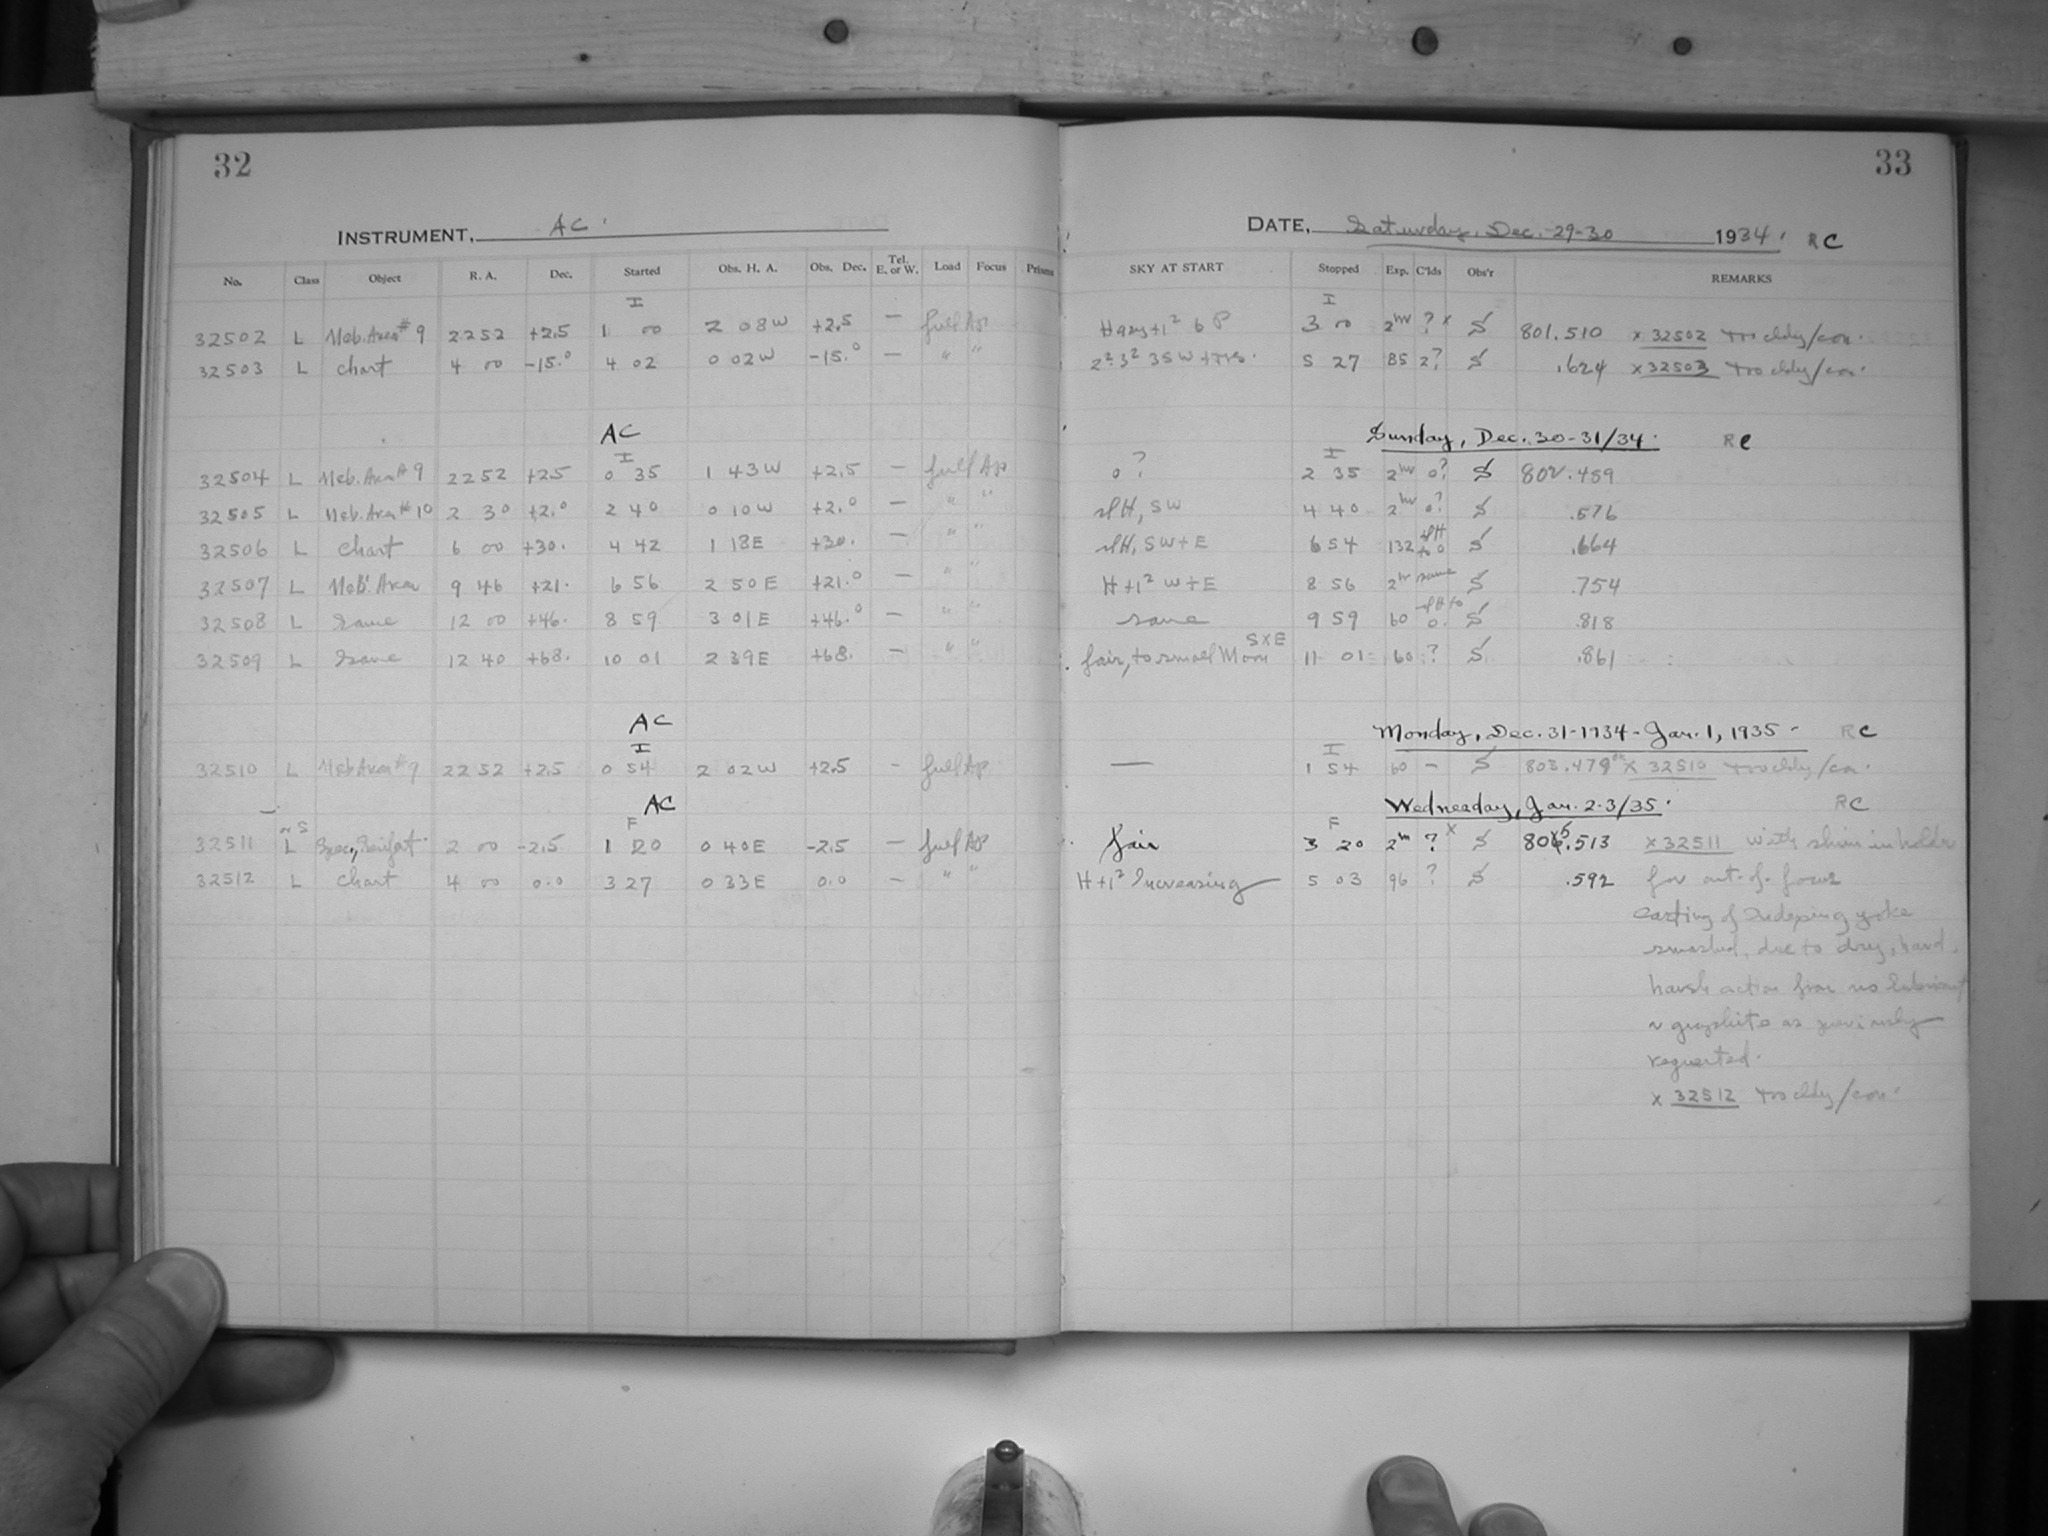 32
33
INSTRUMENT, AC.
DATE, Saturday, Dec. 29-30 1934. RC
No. Class Object R. A. Dec. Started Obs. H. A. Obs. Dec. Tel. E. or W. Load Focus Prisms SKY AT START Stopped Exp. C'lds Obs'r REMARKS
I I
32502 L Neb. Area #9 22 52 +2.5 1 00 2 08 W +2.5 — full Ap Hazy+1² 6 P 3 00 2hr ? x S 801.510 x 32502 too cldy/con.
32503 L chart 4 00 -15.0 4 02 0 02 W -15.0 — " " 5 27 85 2? S .624 x 32503 too cldy/con.
AC Sunday, Dec. 30-31/34. RC
I I
32504 L Neb. Area #9 22 52 +2.5 0 35 1 43 W +2.5 — full Ap 0? 2 35 2hr 0? S 802.489
32505 L Neb. Area #10 2 30 +2.0 2 40 0 10 W +2.0 — " " slH, SW 4 40 2hr 0? S .576
32506 L chart 6 00 +30. 4 42 1 18 E +30. — " " slH, SW+E 6 54 132 slH to 0 S .664
32507 L Neb. Area 9 46 +21. 6 56 2 50 E +21.0 — " " H+1² W+E 8 56 2hr same S .754
32508 L same 12 00 +46. 8 59 3 01 E +46.0 — " " same 9 59 60 slH to 0. S .818
32509 L same 12 40 +68. 10 01 2 39 E +68. — " " fair, to small Moon SXE 11 01 60 ? S .861
AC Monday, Dec. 31-1934 - Jan. 1, 1935 - RC
I I
32510 L Neb Area #9 22 52 +2.5 0 54 2 02 W +2.5 - full Ap — 1 54 60 - S 803.479 x 32510 too cldy/con.
AC Wednesday, Jan. 2-3/35. RC
F F
32511 L 2 00 -2.5 1 20 0 40 E -2.5 — full Ap fair 3 20 2hr ? x S .513 x 32511 with shim in holder
32512 L chart 4 00 0.0 3 27 0 33 E 0.0 — " " H+1² Increasing 5 03 96 ? S .592 for out-of-focus
Casting of Indexing yoke
smashed, due to dry, hard,
harsh action from no lubricant
or graphite as previously
requested.
x 32512 too cldy/con.